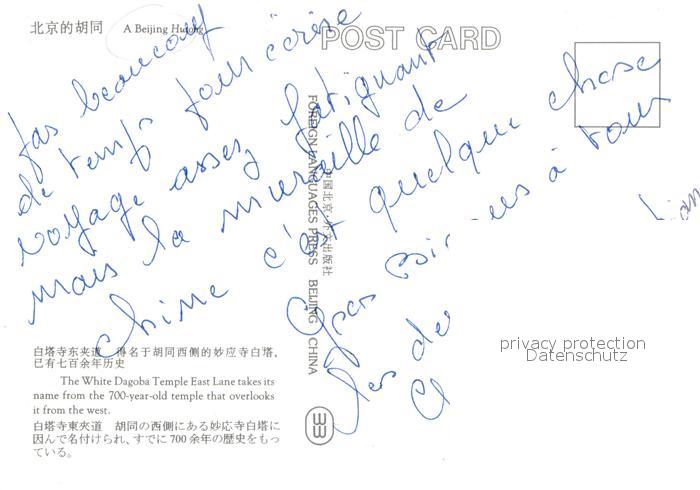 北京的胡同 A Beijing Hutong
POST CARD
pas beaucoup
de temps pour écrire
voyage assez fatiguant
mais la muraille de
chine c'est quelque chose
Gros à tous
Les
privacy protection
Datenschutz
FOREIGN LANGUAGES PRESS BEIJING CHINA
中国北京·外文出版社
白塔寺东夹道 得名于胡同西侧的妙应寺白塔，
已有七百余年历史
The White Dagoba Temple East Lane takes its
name from the 700-year-old temple that overlooks
it from the west.
白塔寺東夾道 胡同の西側にある妙応寺白塔に
因んで名付けられ、すでに700余年の歴史をもっ
ている。